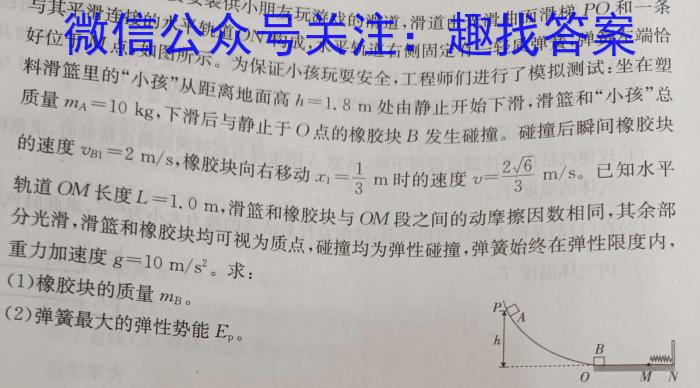 与其平滑连接的水平轨道ON构成,水平轨道右侧固定有一轻质弹簧,弹簧左端恰
微信公众号关注:趣找答案
好位于M点,如图所示。为保证小孩玩耍安全,工程师们进行了模拟测试:坐在塑
料滑篮里的“小孩”从距离地面高h=1.8 m处由静止开始下滑,滑篮和“小孩”总
质量mA=10 kg,下滑后与静止于O点的橡胶块B发生碰撞。碰撞后瞬间橡胶块
的速度vB1=2 m/s,橡胶块向右移动x1=1/3 m时的速度v=2√6/3 m/s。已知水平
轨道OM长度L=1.0 m,滑篮和橡胶块与OM段之间的动摩擦因数相同,其余部
分光滑,滑篮和橡胶块均可视为质点,碰撞均为弹性碰撞,弹簧始终在弹性限度内,
重力加速度g=10 m/s²。求:
(1)橡胶块的质量mB。
(2)弹簧最大的弹性势能Ep。
P
A
h
B
O
M
N